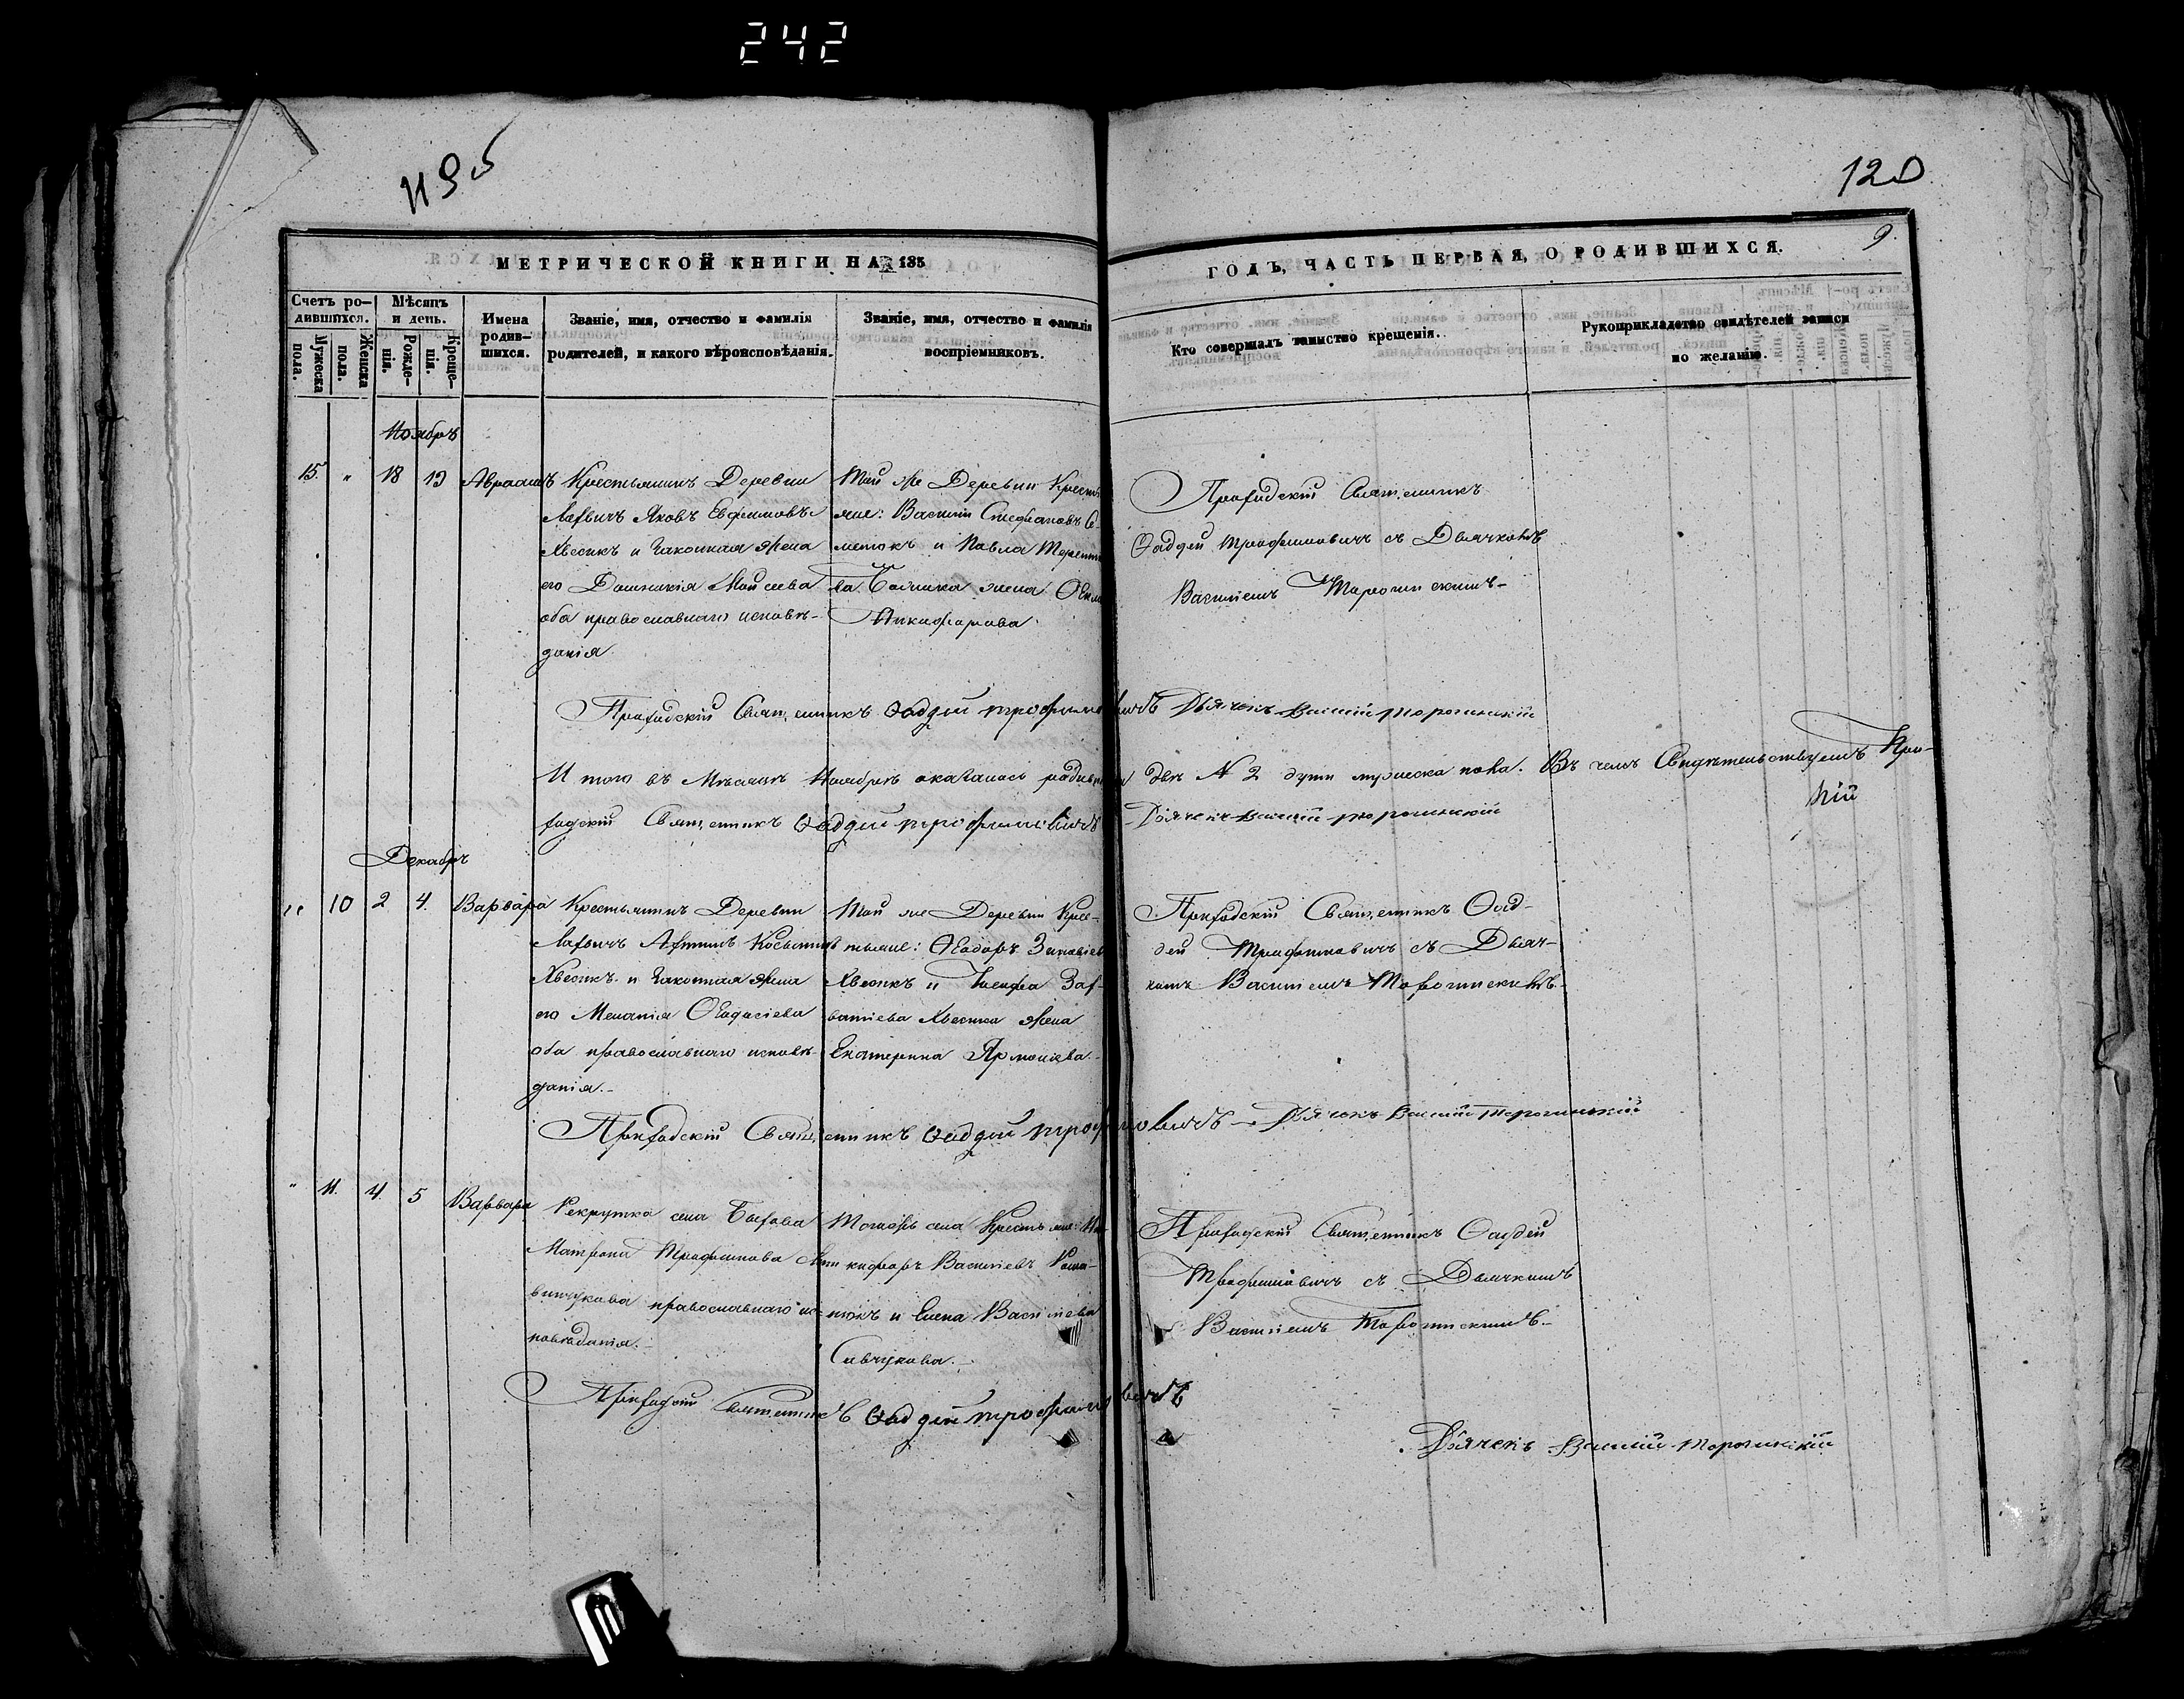 242
119 об
120
9.
МЕТРИЧЕСКОЙ КНИГИ НА 185
ГОДЪ, ЧАСТЬ ПЕРВАЯ, О РОДИВШИХСЯ.
Счетъ ро-
дившихся.
Мужеска пола.
Женска пола.
Мѣсяцъ
и день.
Рожде-
нія.
Креще-
нія.
Имена
родив-
шихся.
Званіе, имя, отчество и фамилія
родителей, и какого вѣроисповѣданія.
Званіе, имя, отчество и фамилія
воспріемниковъ.
Кто совершалъ таинство крещенія.
Рукоприкладство свидѣтелей записи
по желанію.
Ноябрь
15. " 18 19 Авраамъ
Крестьянинъ Деревни
Яковъ Евфимовъ
Хвесикъ и законная жена
его Домникія Мойсеева
оба православнаго исповѣ-
данія
Той же Деревни Кресть
яне: Василій Стефановъ Се-
менюкъ и Павла Терентіе
ва жена
Никифорова
Приходскій Священникъ
Ѳаддей Трофимовичъ съ Дьячкомъ
Василіемъ Торогинскимъ-
Приходскій Священникъ Ѳаддей Трофимовичъ Дьячекъ Василій Торогинскій
И того въ Мѣсяцѣ Ноябрѣ оказалось родивших двѣ № 2 души мужеска пола. Въ чемъ Свидѣтельствуемъ При-
ходскій Священникъ Ѳаддей Трофимовичъ Дьячекъ Василій Торогинскій
Декабрь
" 10 2 4. Варвара
Крестьянинъ Деревни
Хвесикъ и законная жена
его Меланія Ѳеодосіева
оба православнаго исповѣ-
данія.-
Той же Деревни Крес-
тьяне: Ѳеодоръ Зиновіев
Хвесикъ и Зах-
ватіева Хвесика жена
Екатерина Ярмолаева.-
Приходскій Священникъ Ѳад-
дей Трофимовичъ съ Дьяч-
комъ Василіемъ Торогинскимъ.
Приходскій Священникъ Ѳаддей Трофимовичъ - Дьячекъ Василій Торогинскій
" 11. 4. 5 Варвара
Рекрутка села
Матрона Трофимова
православнаго ис-
повѣданія.-
Тогожъ села Крестьяне: Ни-
кифоръ Василіевъ Рома-
нюкъ и Елена Василіева
Савчукова.-
Приходскій Священникъ Ѳаддей
Трофимовичъ съ Дьячкомъ
Василіемъ Торогинскимъ.-
Приходскій Священникъ Ѳаддей Трофимовичъ
Дьячекъ Василій Торогинскій